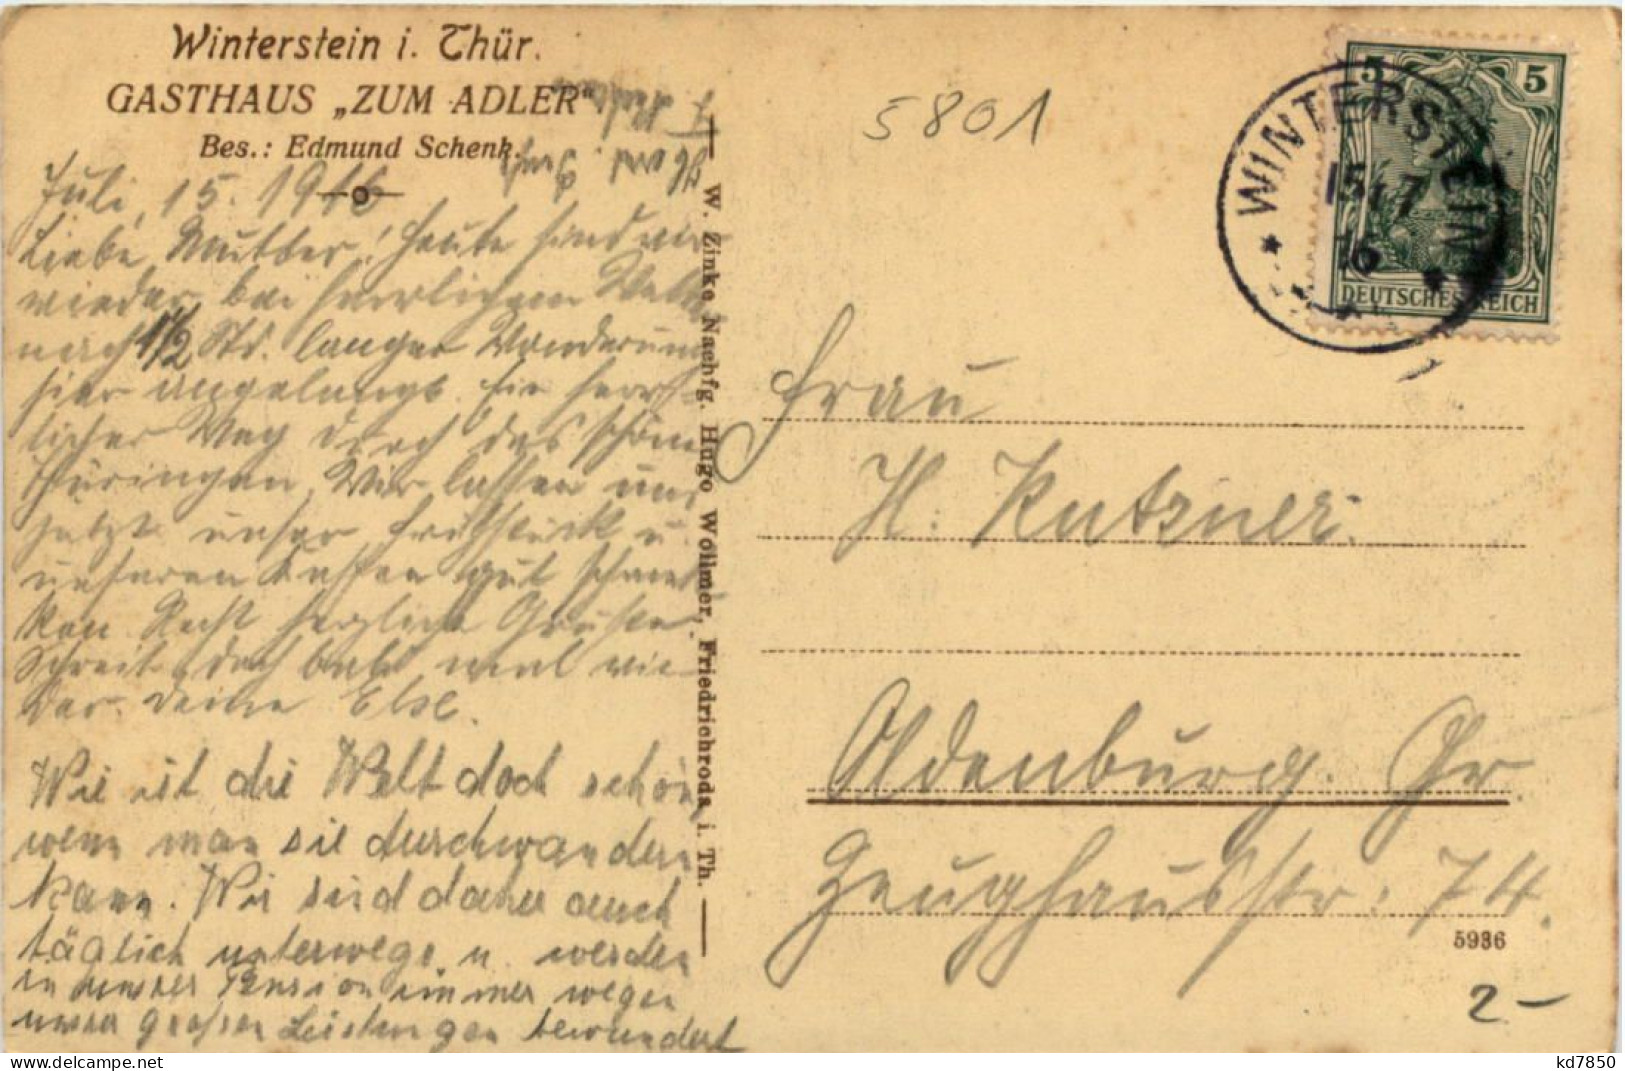 Winterstein i. Thür.
GASTHAUS „ZUM ADLER“.
Bes.: Edmund Schenk.
Juli, 15. 1916
Liebe Mutter! Heute sind wir
wieder bei herrlichem
nach 1 1/2 Std. langer Wanderung
hier angelangt. Ein herr-
licher Weg durch das schöne
Thüringen. Wir lassen uns
jetzt unser Frühstück u.
unseren Kaffee gut schmek-
ken. Recht herzliche Grüße
Schreib doch bald mal wie-
der. Deine Else.
Wie ist die Welt doch schön,
wenn man sie durchwandern
kann. Wir sind daher auch
täglich unterwegs u. werden
in unserer Pension immer wegen
unserer großen Leistungen bewundert
W. Zinke Nachfg. Hugo Wollmer, Friedrichroda i. Th.
5801
5 5
DEUTSCHES REICH
* WINTERSTEIN *
15.7
16
Frau
H. Kutzner.
Oldenburg. Gr.
Zeughausstr. 74.
5936
2-
kd7850